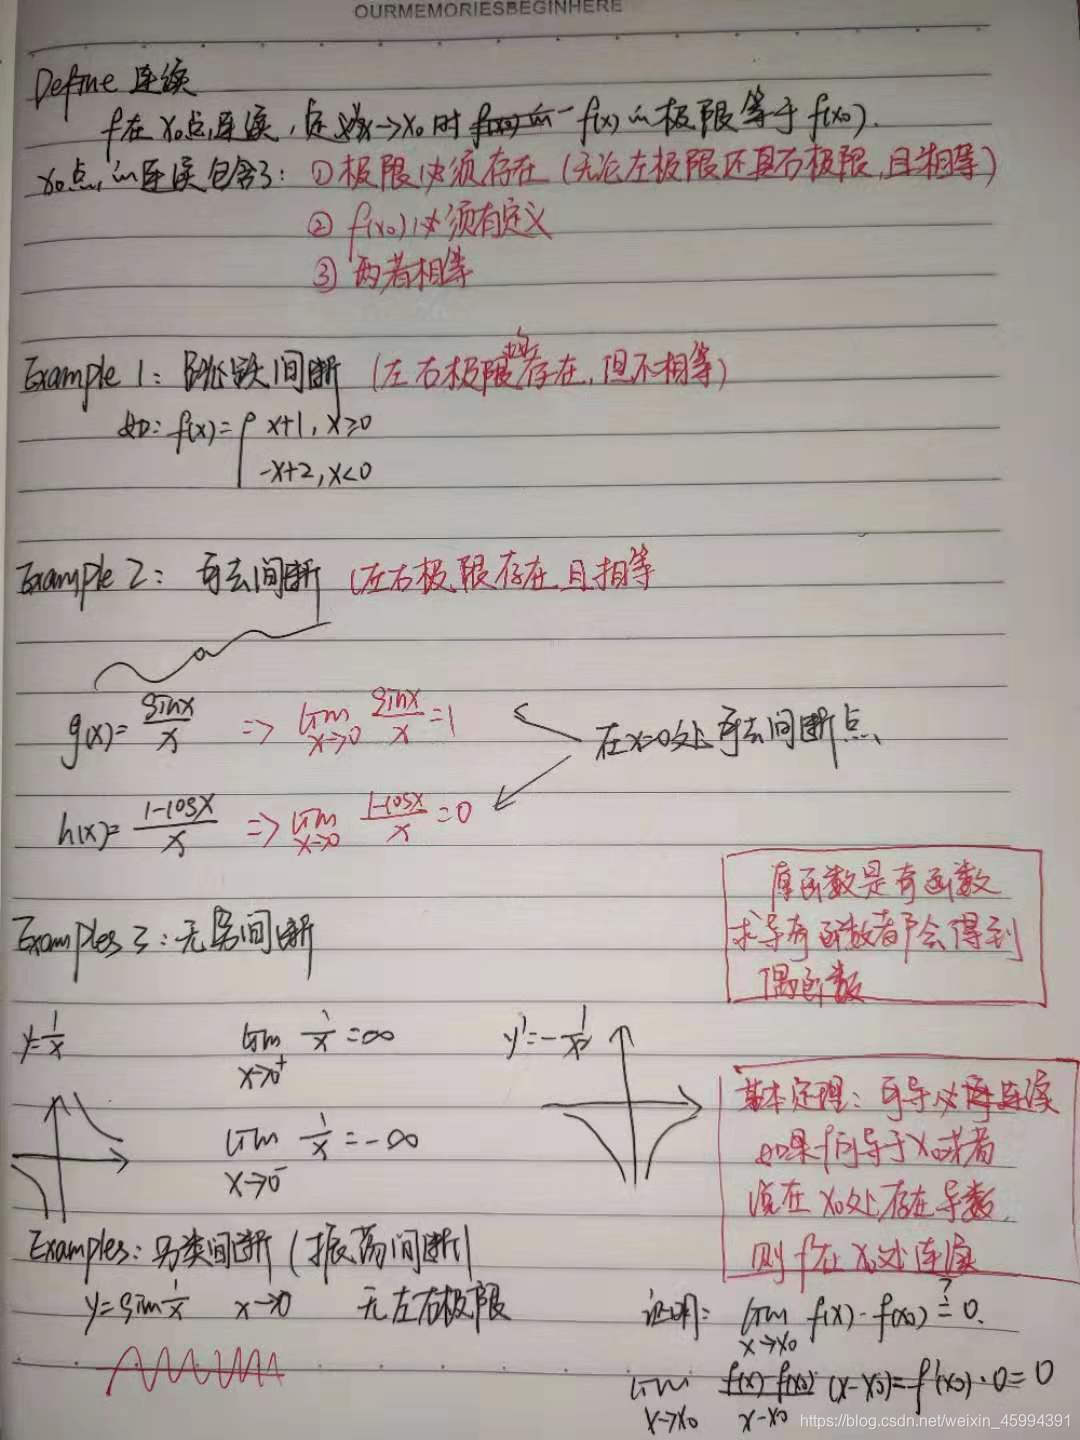 OURMEMORIESBEGINHERE
Define 连续
f在x₀点连续,是当x→x₀时 f(x)的极限等于f(x₀).
x₀点的连续包含了:①极限必须存在(无论左极限还是右极限,且相等)
②f(x₀)必须有定义
③两者相等
Example 1: 阶跃间断 (左右极限都存在,但不相等)
如: f(x)={ x+1, x≥0
-x+2, x<0
Example 2: 可去间断 (左右极限存在且相等
g(x)=sinx/x => lim x→0 sinx/x=1
在x=0处可去间断点
h(x)=1-cosx/x => lim x→0 1-cosx/x=0
奇函数是奇函数
求导奇函数都会得到
偶函数
Examples 3: 无穷间断
y=1/x lim x→0⁺ 1/x=∞ y'=-1/x²
lim x→0⁻ 1/x=-∞
基本定理: 可导必连续
如果f可导于x₀或者
说在x₀处存在导数
则f在x₀处连续
Examples: 另类间断(振荡间断)
y=sin1/x x→0 无左右极限
证明: lim x→x₀ f(x)-f(x₀)=?0.
lim x→x₀ f(x)-f(x₀)/x-x₀ (x-x₀)=f'(x₀)·0=0
https://blog.csdn.net/weixin_45994391